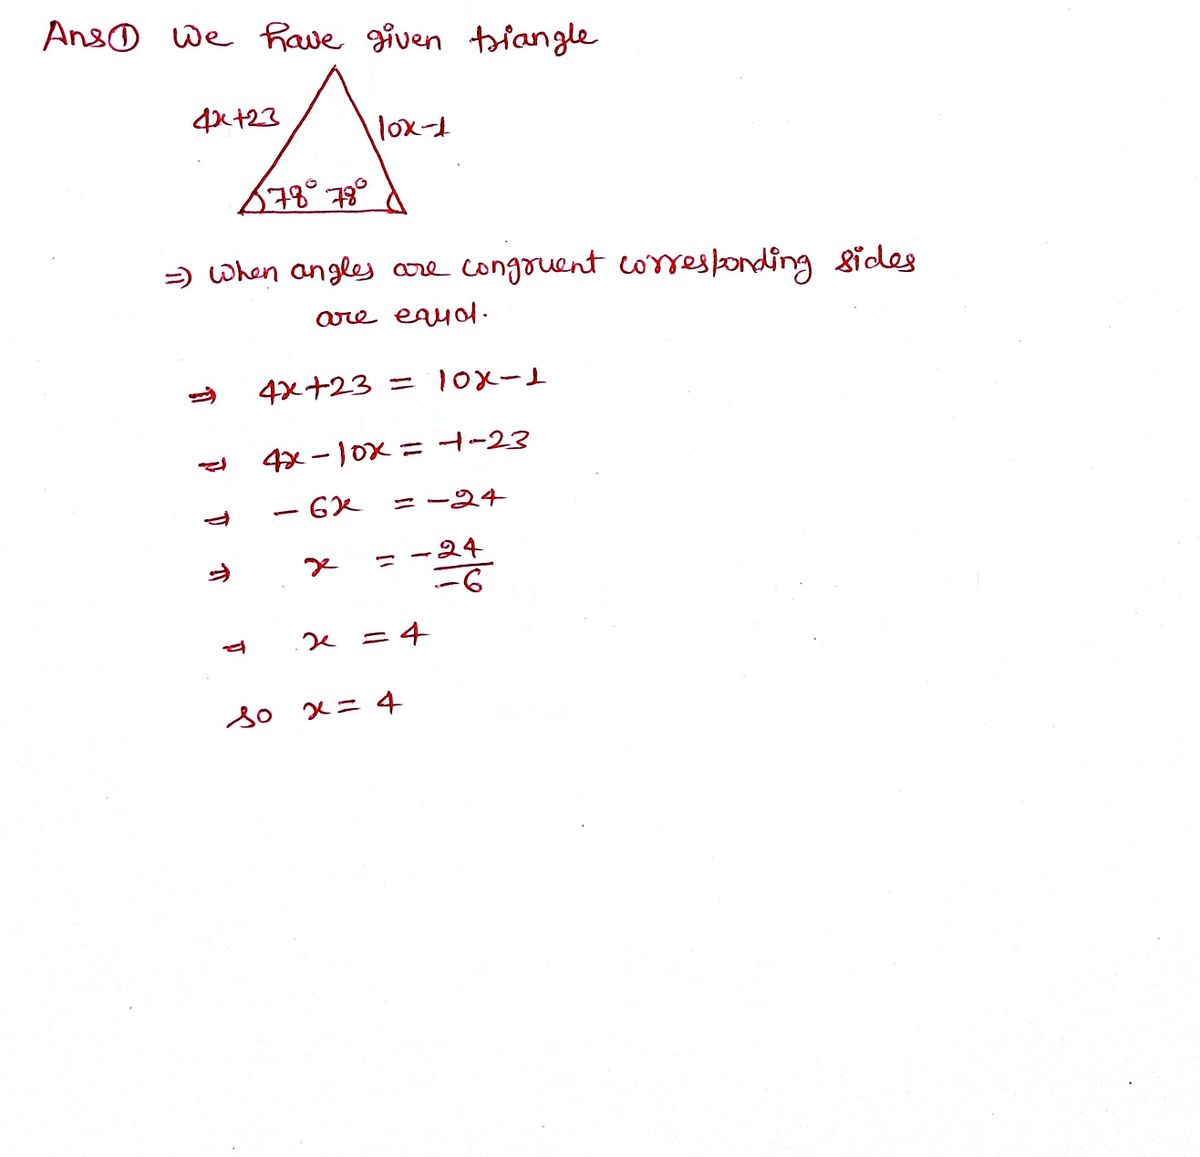 Ans① We have given triangle
4x+23
10x-1
78° 78°
⇒ When angles are congruent corresponding sides
are equal.
⇒ 4x+23 = 10x-1
⇒ 4x-10x = -1-23
⇒ -6x = -24
⇒ x = -24/-6
⇒ x = 4
so x = 4